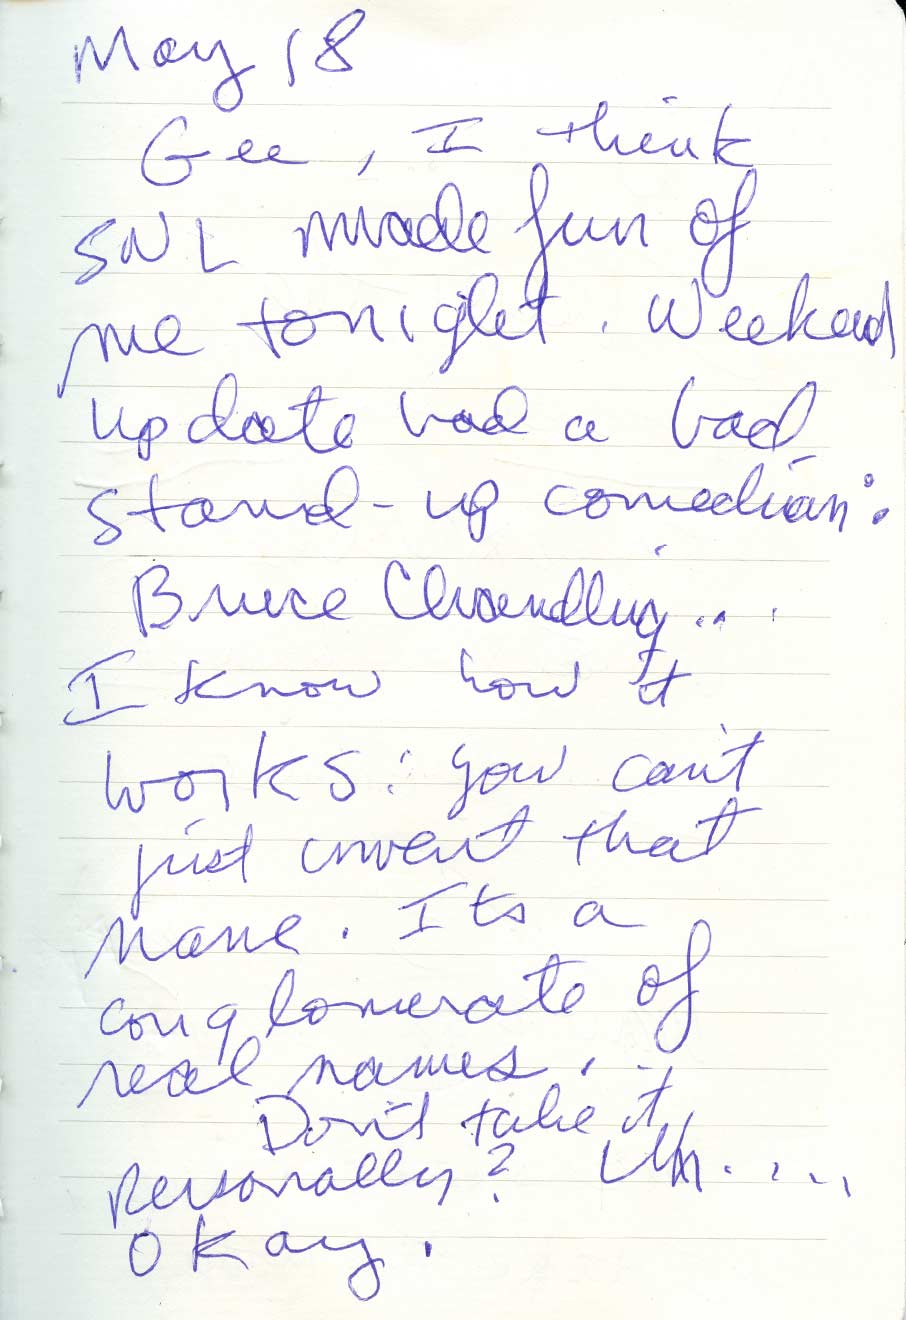 May 18
Gee, I think
SNL made fun of
me tonight. Weekend
update had a bad
stand-up comedian:
Bruce Chandling...
I know how it
works: you can't
just invent that
name. Its a
conglomerate of
real names.
Don't take it
personally? Uh....
okay.